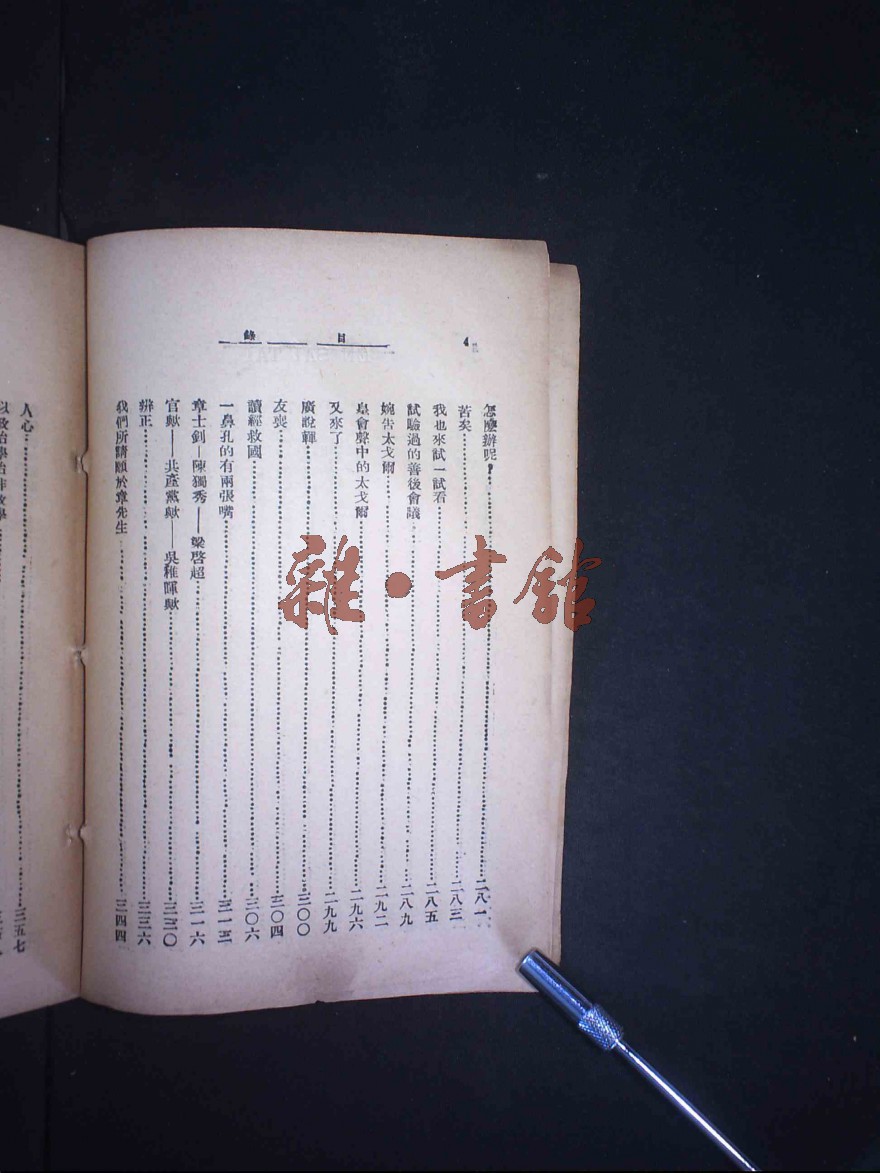 目錄
4
怎麼辦呢?……二八一
苦矣……二八三
我也來試一試看……二八五
試驗過的善後會議……二八九
婉告太戈爾……二九二
皇會聲中的太戈爾……二九六
又來了……二九九
廣說輝……三〇〇
友喪……三〇四
讀經救國……三〇六
一鼻孔的有兩張嘴……三一三
章士釗—陳獨秀——梁啓超……三一六
官歟——共產黨歟——吳稚暉歟……三二〇
辨正……三三六
我們所請願於章先生……三四四
人心……三五七
以政治學治非政學
雜·書館